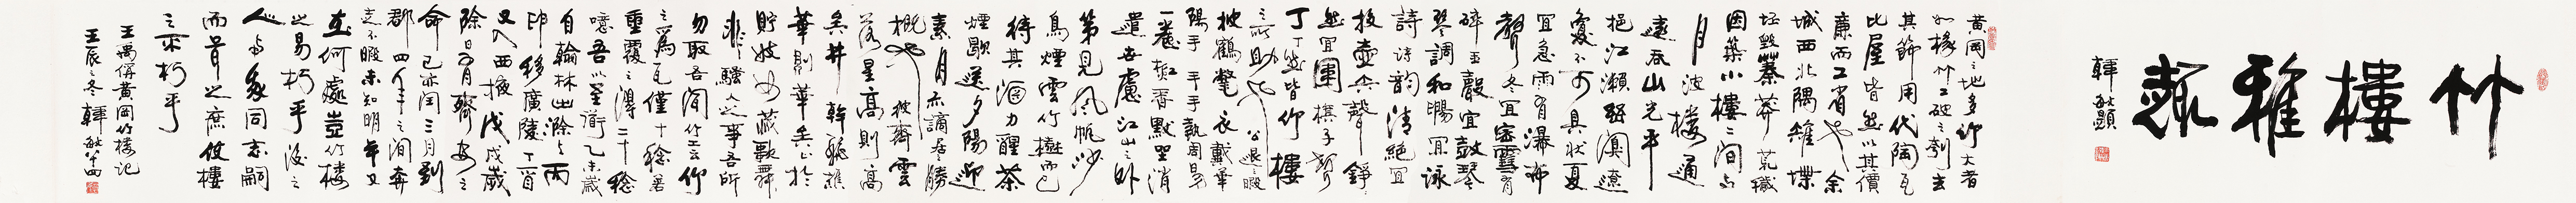 竹樓雅趣
韓敏題
黄岡之地多竹大者
如椽竹工破之刳去
其節用代陶瓦
比屋皆然以其價
廉而工省也余
城西北隅雉堞
圮毀蓁莽荒穢
因築小樓二間與
月波樓通
遠吞山光平
挹江瀨幽闃遼
夐不可具狀夏
宜急雨有瀑布
聲冬宜密雪有
碎玉聲宜鼓琴
琴調和暢宜詠
詩詩韵清絕宜
投壺矢聲錚
然宜圍棋子聲
丁丁然皆竹樓
之所助也公退之暇
披鶴氅衣戴華
陽手手執周易
一卷焚香默坐消
遣世慮江山之外
第見風帆沙
鳥煙雲竹樹而已
待其酒力醒茶
煙歇送夕陽迎
素月亦謫居之勝
概也彼齊雲
落星高則高
矣井幹麗譙
華則華矣止於
貯妓女藏歌舞
非騷人之事吾所
勿取吾聞竹工云竹
之為瓦僅十稔若
重覆之得二十稔
噫吾以至道乙未歲
自翰林出滁上丙
申移廣陵丁酉
又入西掖戊戌歲
除日有齊安之
命己亥閏三月到
郡四年之間奔
走不暇未知明年又
在何處豈竹樓
之易朽乎後之
人與我同志嗣
而葺之庶使樓
之不朽乎
王禹偁黄岡竹樓記
壬辰之冬韓敏書